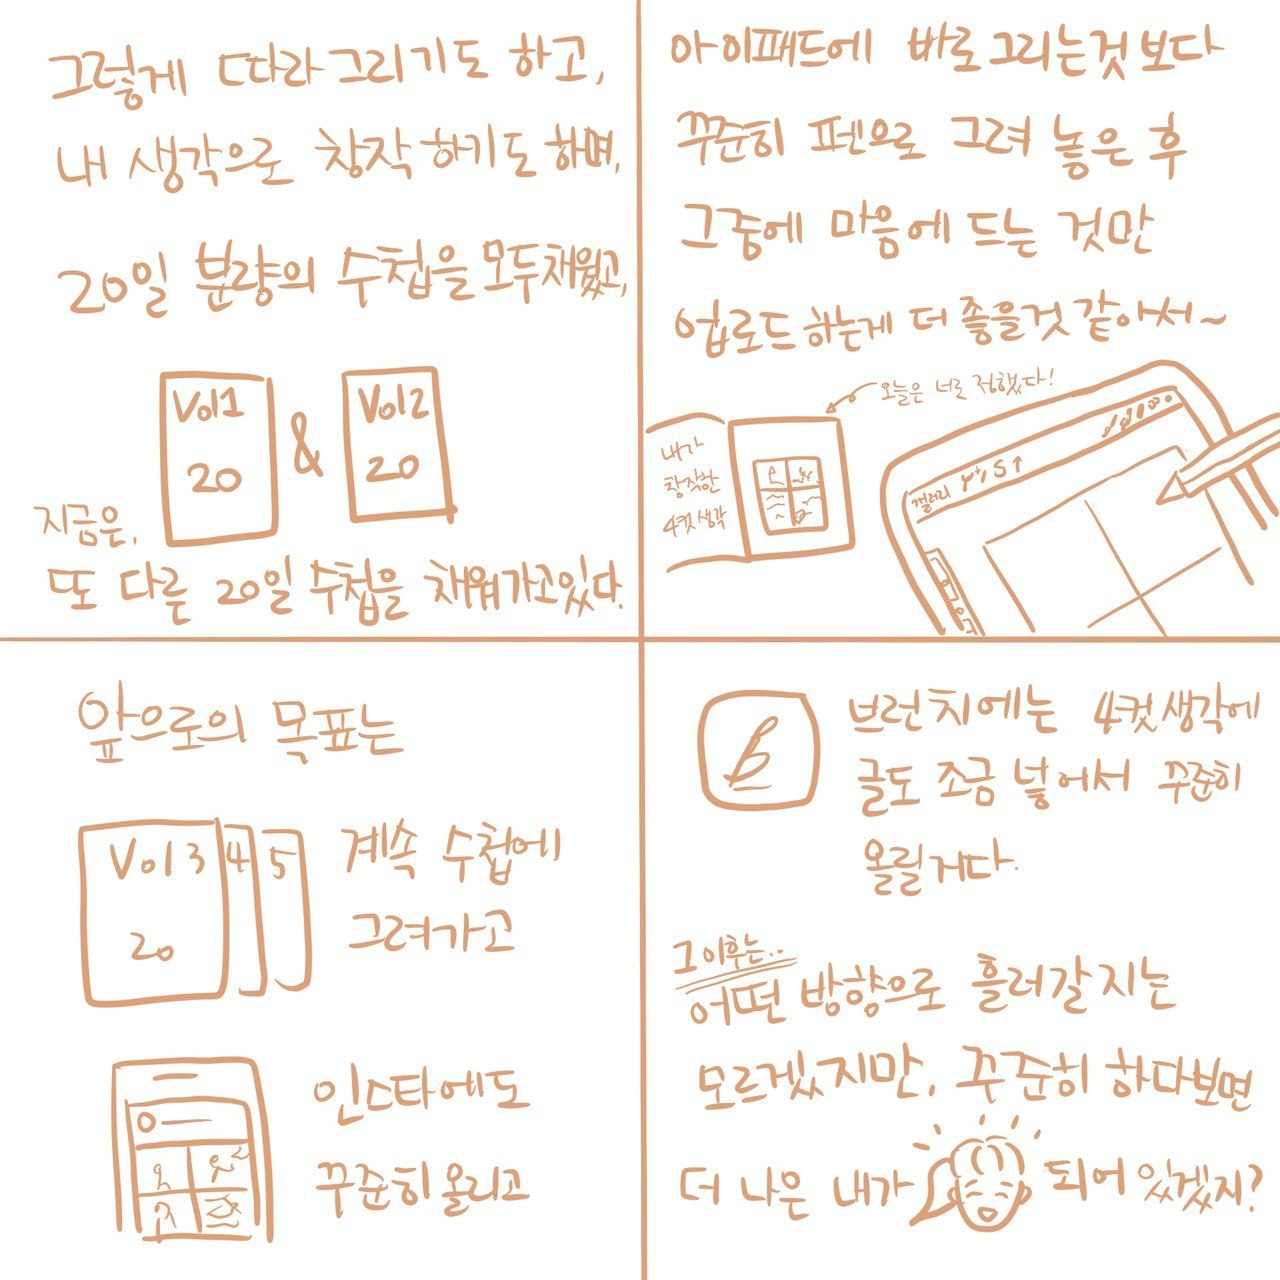 그렇게 따라그리기도 하고,
내 생각으로 창작하기도 하며,
20일 분량의 수첩을 모두채웠고,
Vol1
20
&
Vol2
20
지금은,
또 다른 20일 수첩을 채워가고있다.
아이패드에 바로그리는것보다
꾸준히 펜으로 그려 놓은 후
그중에 마음에 드는 것만
업로드하는게 더 좋을것 같아서~
오늘은 너로 정했다!
내가
창작한
4컷생각
갤러리
앞으로의 목표는
Vol 3 4 5
20
계속 수첩에
그려가고
인스타에도
꾸준히올리고
b
브런치에는 4컷생각에
글도 조금 넣어서 꾸준히
올릴거다.
그이후는..
어떤 방향으로 흘러갈지는
모르겠지만, 꾸준히 하다보면
더 나은 내가 되어있겠지?